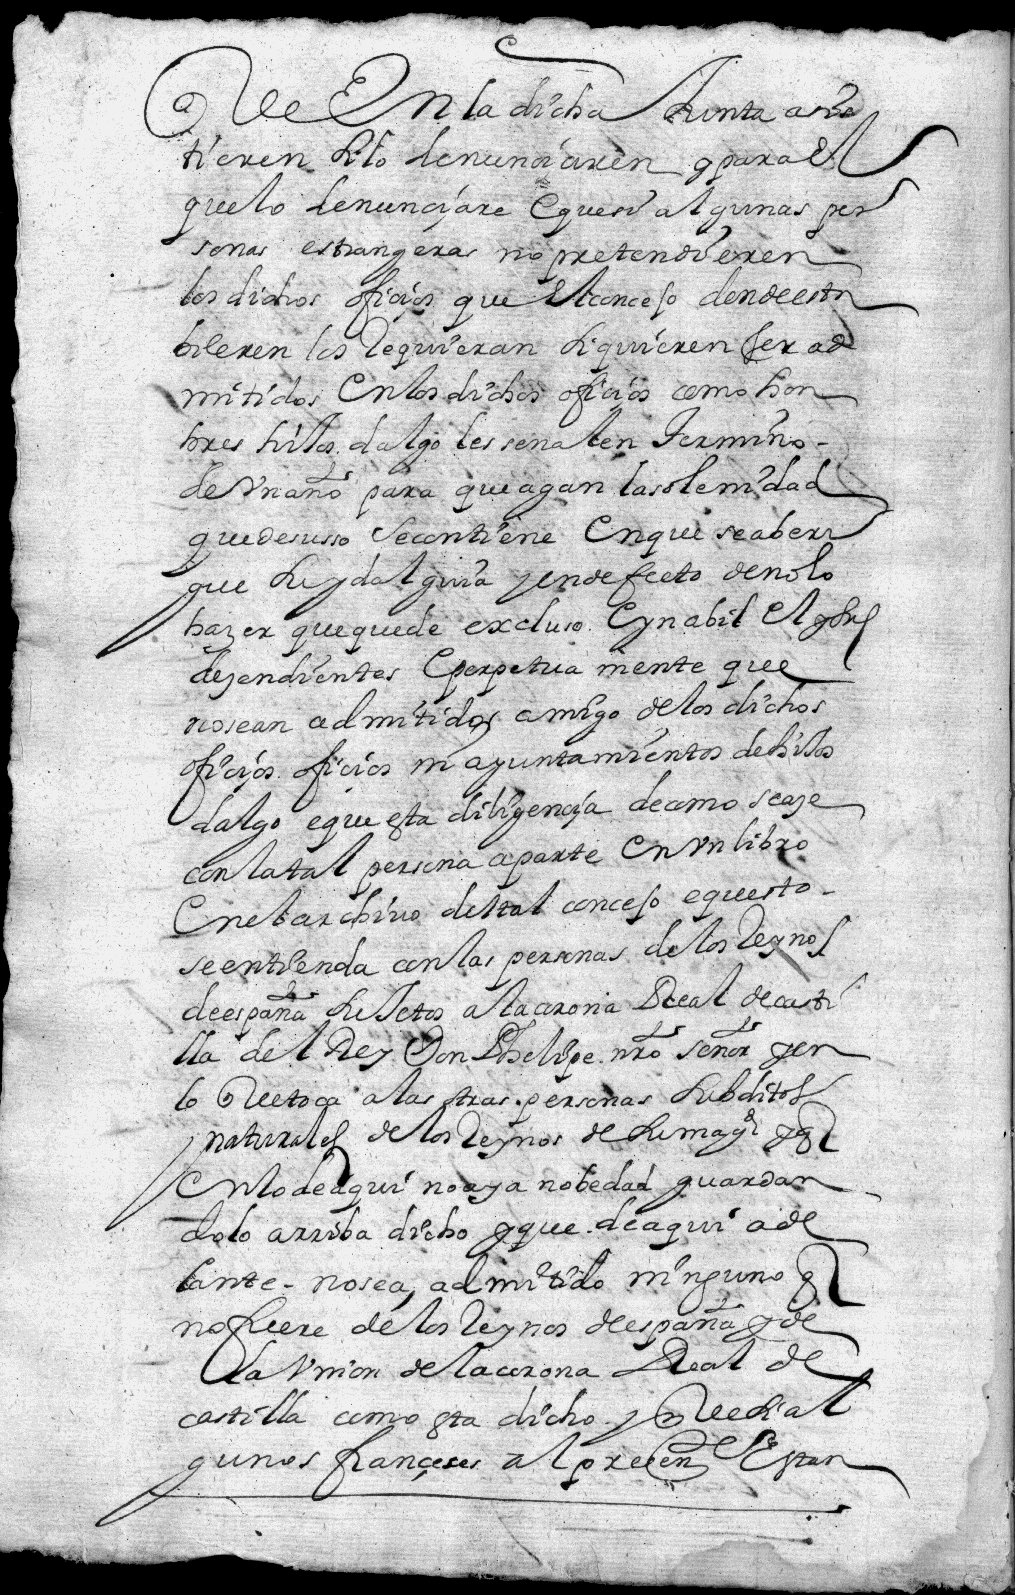 Que En la dicha Junta asis
tieren si lo denunciaren y para El
que lo denunçiare E que si algunas per
sonas estrangeras no pretendieren
los dichos ofiçios que El conçejo donde estu
bieren los Requieran si quieren ser ad
mitidos En los dichos ofiçios como hon
bres hijos dalgo les señalen Termino -
de Vn año para que agan la solemidad
que desusso Se contiene En que se aberi
gue su ydalguia y en defecto de no lo
hazer que quede excluso E ynabil El y sus
desendientes E perpetua mente que
no sean admitidos a migo de los dichos
ofiçios ofiçios ni ayuntamientos de hijos
dalgo e que esta diligençia de como se aze
con la tal persona a parte En Vn libro
En el archivo del tal conçejo e questo -
se entienda con las personas de los Reynos
de españa sujetos a la corona Real de casti
lla del Rey Don Phelipe nro señor y en
lo Que toca a las otras personas subditos
y naturales de los Reynos de su magd y q
En lo de aqui no aya nobedad guardan
dolo arriba dicho y que de aqui ade
lante - no sea admitido ninguno q
no fuere de los Reynos de españa y de
la Vnion de la corona Real de
castilla como esta dicho y Que si al
gunos françeses al preçen Estan